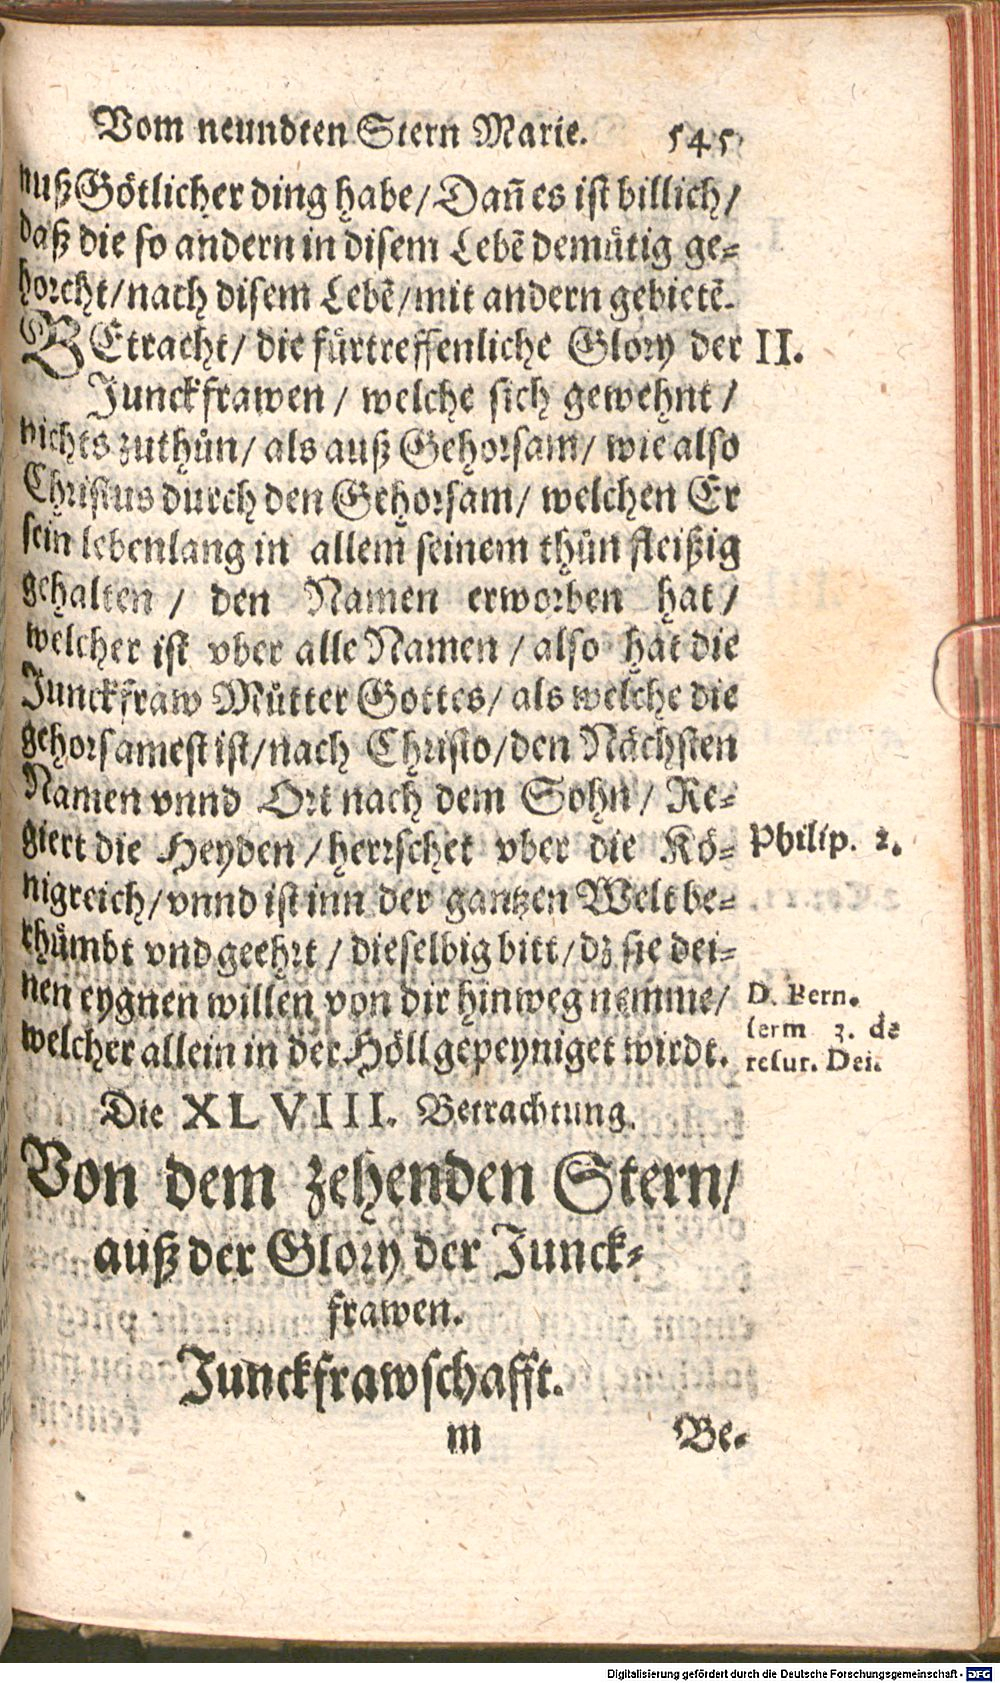 Vom neundten Stern Marie. 545
nuß Götlicher ding habe/ Dañ es ist billich/
daß die so andern in disem Lebẽ demütig ge-
horcht/ nach disem Lebẽ/ mit andern gebietẽ.
BEtracht/ die fürtreffenliche Glory der II.
Junckfrawen/ welche sich gewehnt/
nichts zuthůn/ als auß Gehorsam/ wie also
Christus durch den Gehorsam/ welchen Er
sein lebenlang in allem seinem thůn fleißig
gehalten/ den Namen erworben hat/
welcher ist vber alle Namen/ also hat die
Junckfraw Můtter Gottes/ als welche die
gehorsamest ist/ nach Christo/ den Nächsten
Namen vnnd Ort nach dem Sohn/ Re-
giert die Heyden/ herrschet vber die Kö-
Philip. 2.
nigreich/ vnnd ist inn der gantzen Welt be-
rhümbt vnd geehrt/ dieselbig bitt/ dz sie dei-
nen eygnen willen von dir hinweg nemme/
welcher allein in der Höll gepeyniget wirdt.
D. Bern.
serm 3. de
resur. Dei.
Die XLVIII. Betrachtung.
Von dem zehenden Stern/
auß der Glory der Junck-
frawen.
Junckfrawschafft.
m Be-
Digitalisierung gefördert durch die Deutsche Forschungsgemeinschaft - DFG